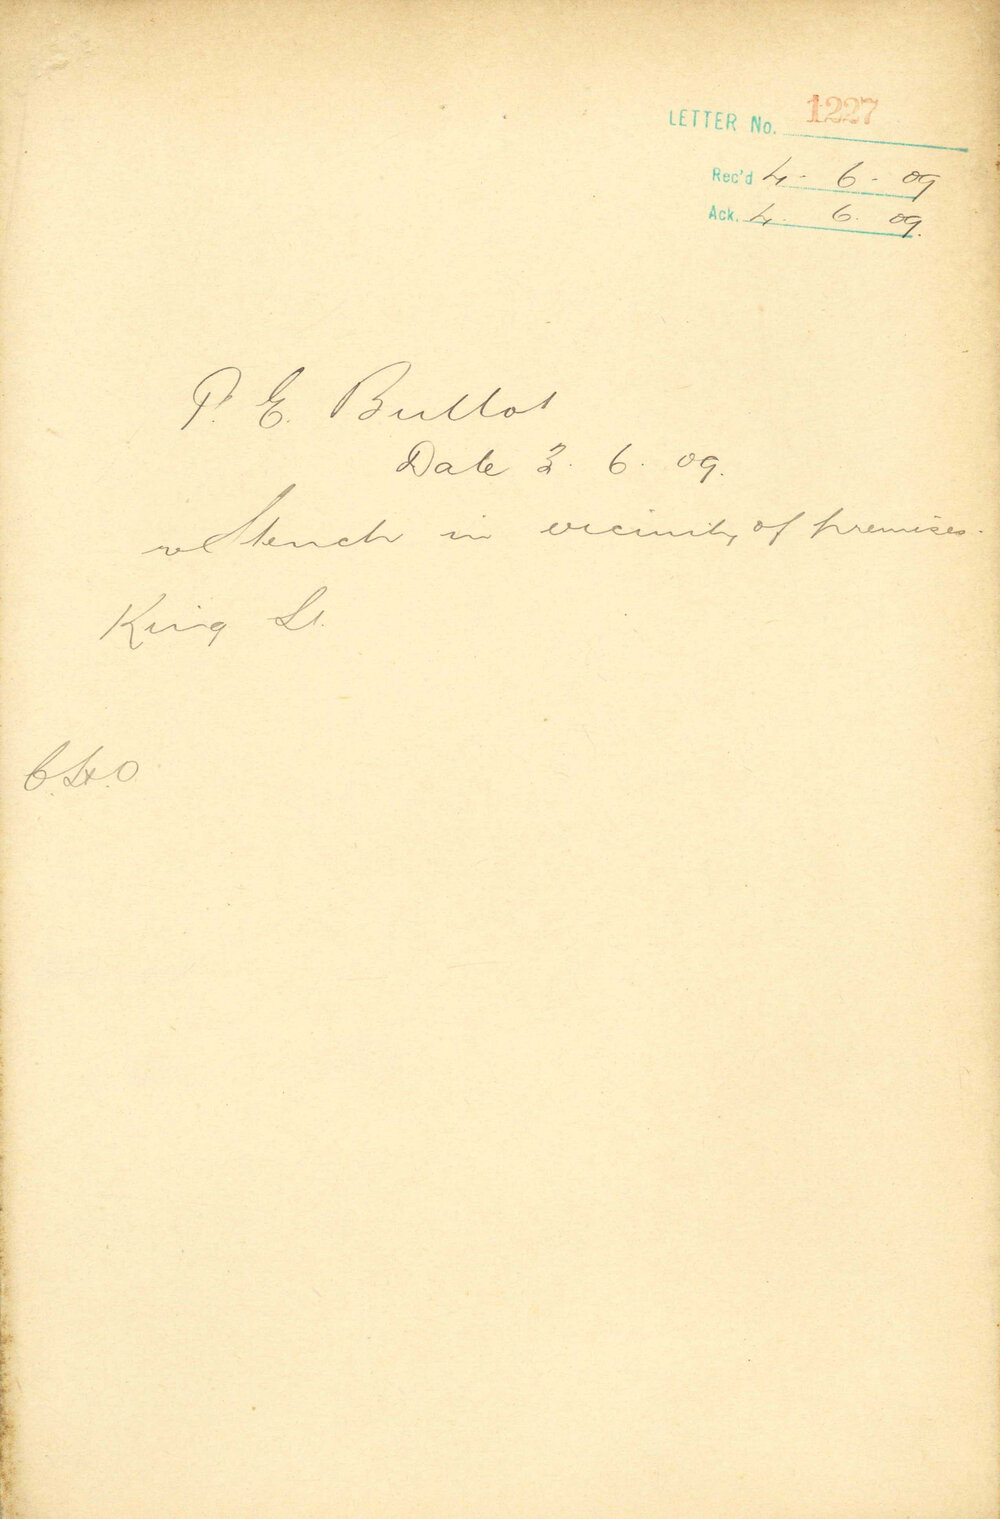 LETTER No. 1227
Rec'd 4 - 6 - 09
Ack. 4. 6. 09.
P. E. Bullot
Date 3. 6. 09.
re Stench in vicinity of premises.
King St.
C.H.O